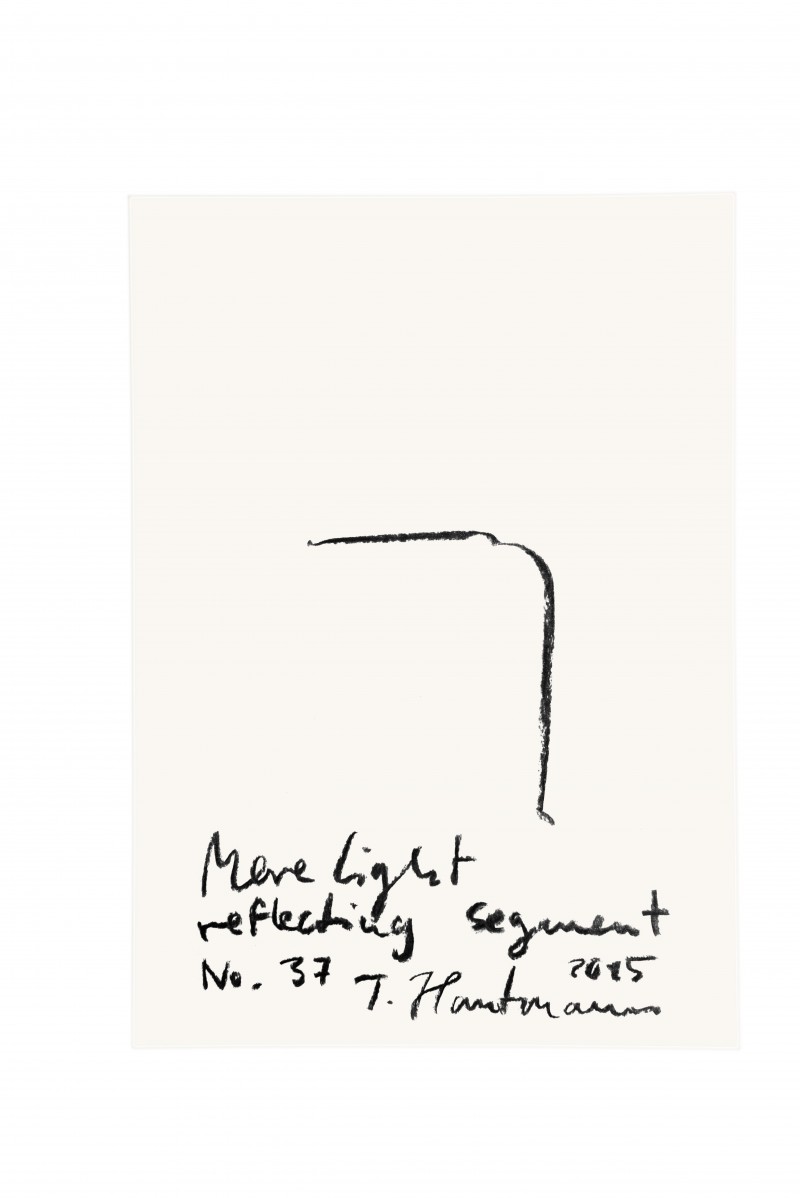 More light
reflecting segment
No. 37 2015
T. Hautmann